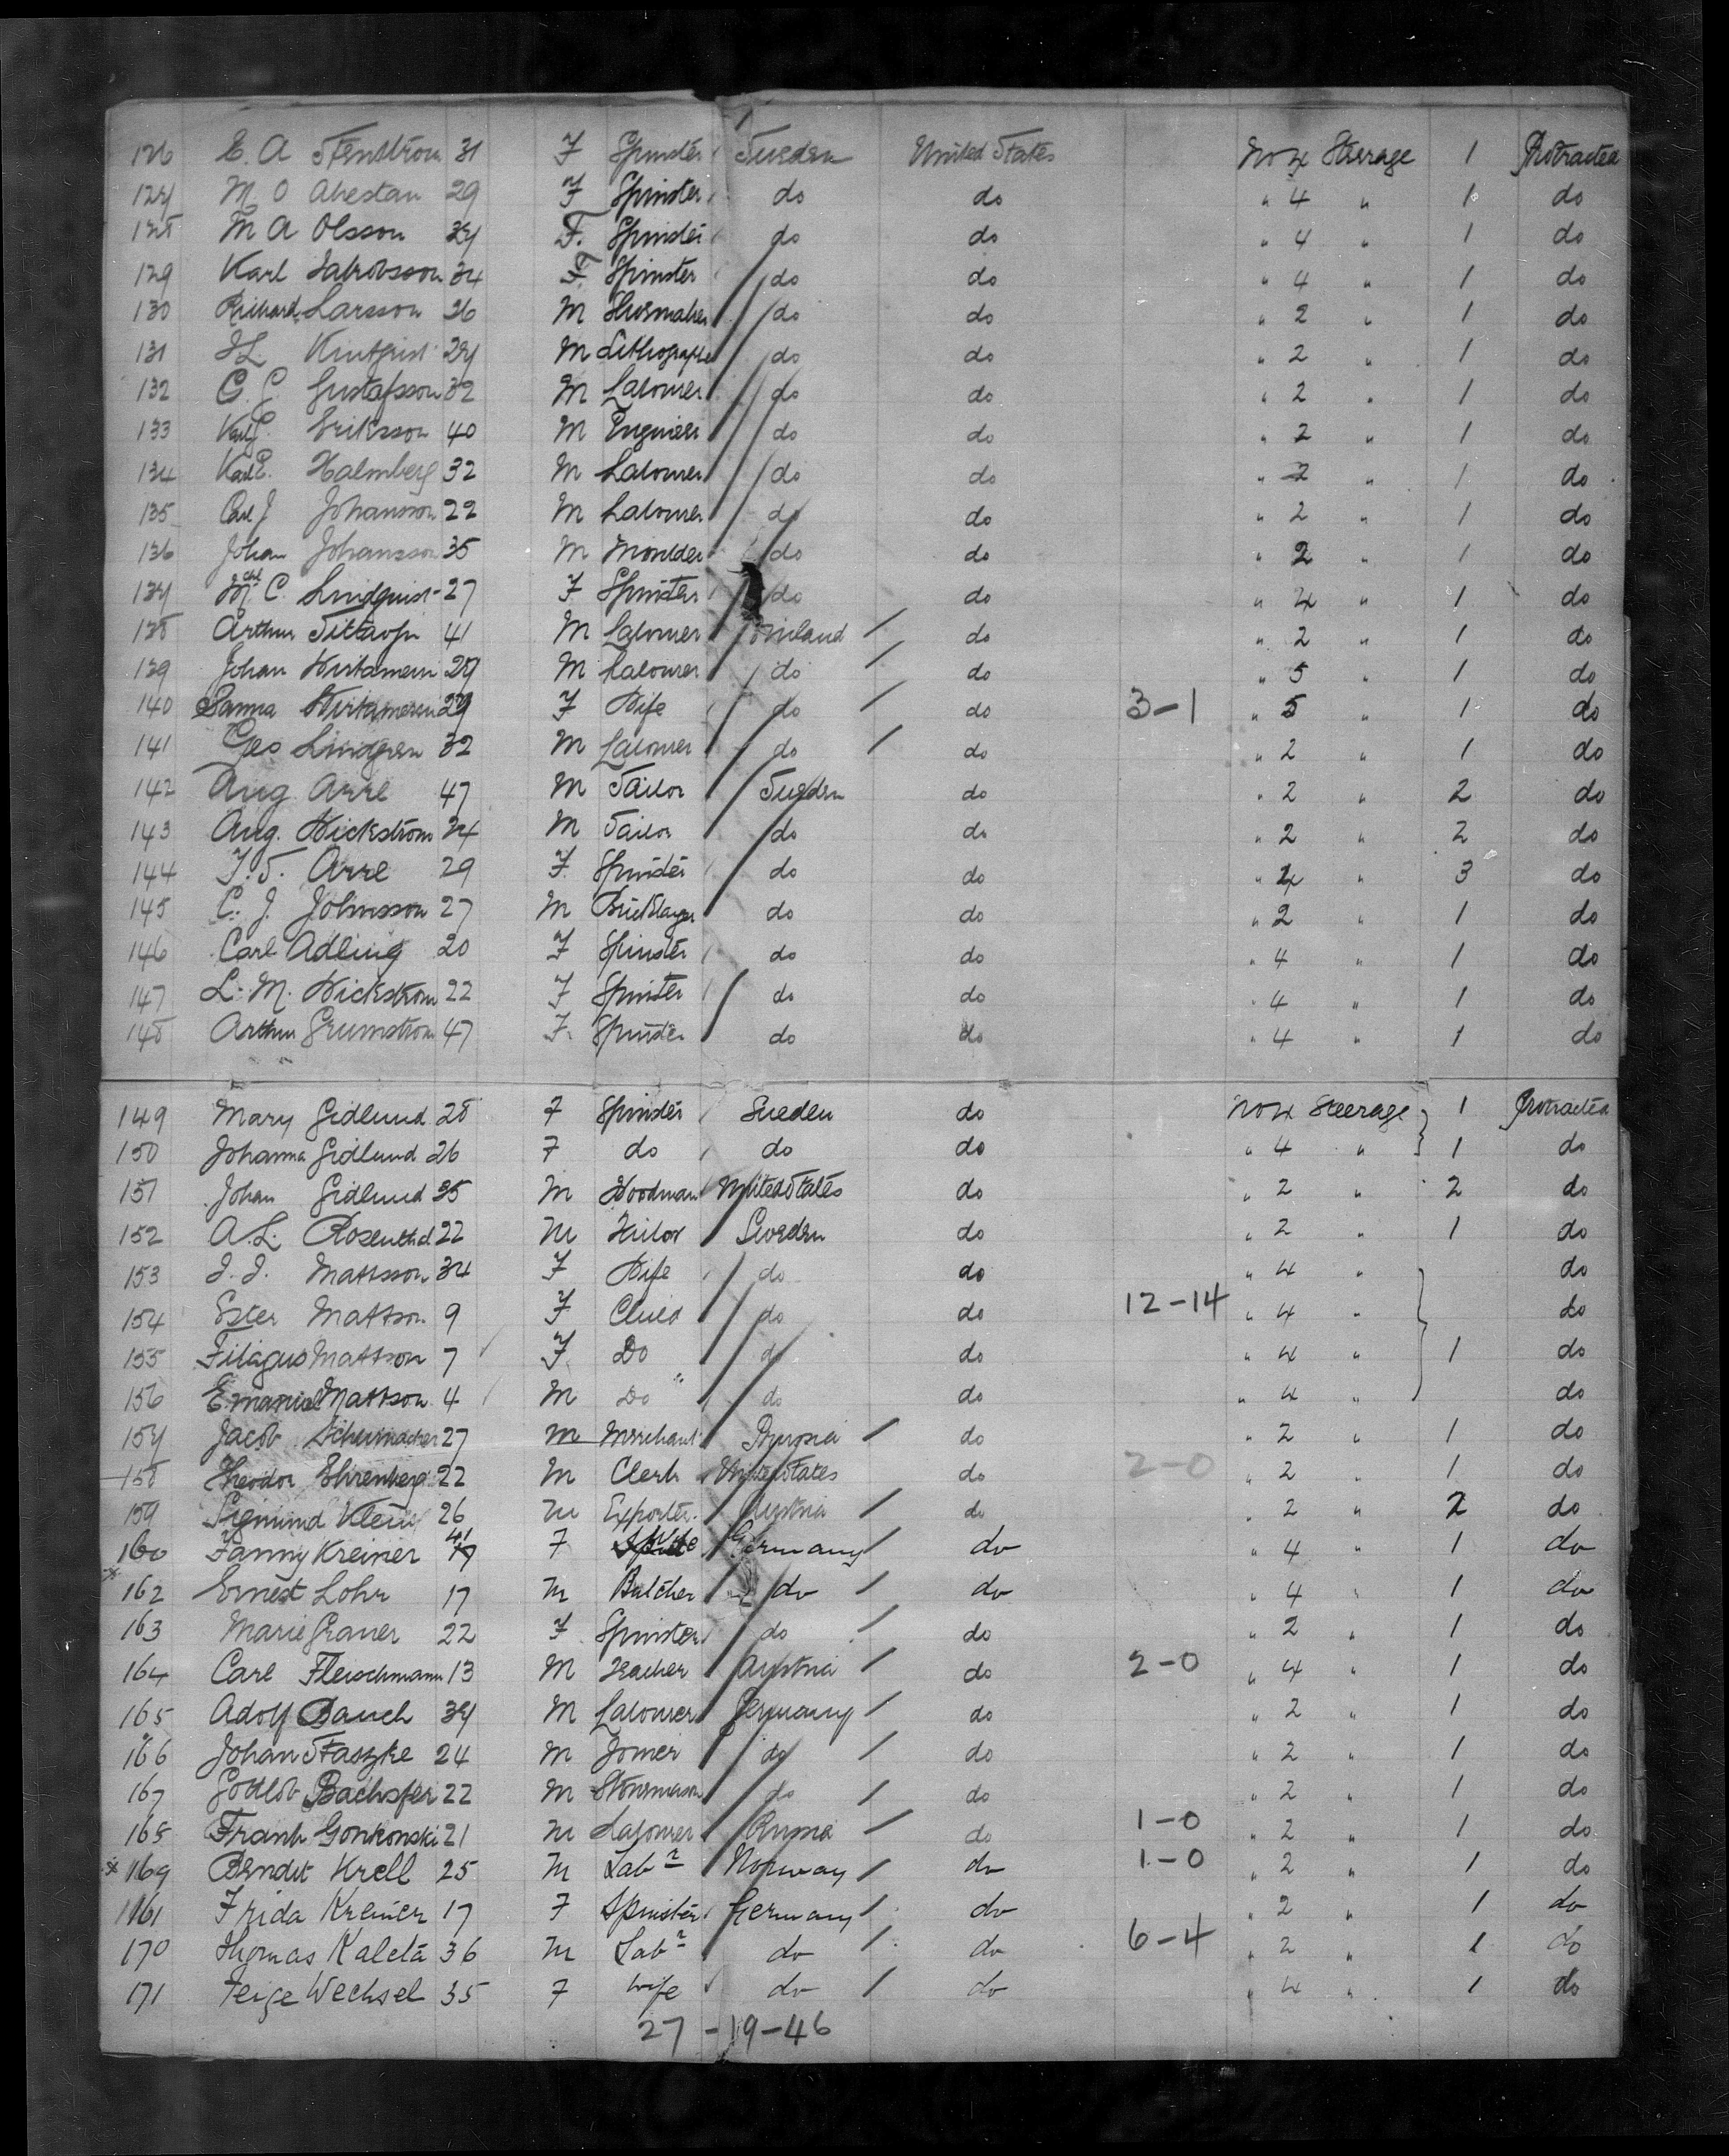 126 E. A Stenstrom 31 F Spinster Sweden United States No 4 Steerage 1 Protracted
127 M O 29 F Spinster do do " 4 " 1 do
128 M A Olsson 37 F. Spinster do do " 4 " 1 do
129 Karl Jakobsson 34 F. Spinster do do " 4 " 1 do
130 Richard Larsson 26 M Shoemaker do do " 2 " 1 do
131 27 M Lithographer do do " 2 " 1 do
132 C. J. Gustafsson 32 M Labourer do do " 2 " 1 do
133 Karl Eriksson 40 M Engineer do do " 2 " 1 do
134 Karl E. Halmberg 32 M Labourer do do " 2 " 1 do
135 Carl J Johansson 22 M Labourer do do " 2 " 1 do
136 Johan Johansson 35 M Moulder do do " 2 " 1 do
137 C. Lindquist 27 F Spinster do do " 4 " 1 do
138 Arthur 41 M Labourer Finland do " 2 " 1 do
139 Johan 27 M Labourer do do " 5 " 1 do
140 Sanna 29 F Wife do do 3-1 " 5 " 1 do
141 Geo Lindgren 32 M Labourer do do " 2 " 1 do
142 Aug Arre 47 M Tailor Sweden do " 2 " 2 do
143 Aug. Wickstrom 24 M Tailor do do " 2 " 2 do
144 F. T. Arre 29 F. Spinster do do " 4 " 3 do
145 C. J. Johnsson 27 M Bricklayer do do " 2 " 1 do
146 Carl Adling 20 F Spinster do do " 4 " 1 do
147 L. M. Wickstrom 22 F Spinster do do " 4 " 1 do
148 Arthur Grumstrom 47 F. Spinster do do " 4 " 1 do
149 Mary Gidlund 28 F Spinster Sweden do No 4 Steerage 1 Protracted
150 Johanna Gidlund 26 F do do do " 4 " 1 do
151 Johan Gidlund 35 M Woodman United States do " 2 " 2 do
152 A. L. Rosenthal 22 M Tailor Sweden do " 2 " 1 do
153 J. J. Mattsson 34 F Wife do do " 4 " do
154 Ester Mattson 9 F Child do do 12-14 " 4 " do
155 Filagus Mattson 7 F. Do do do " 4 " 1 do
156 Emanuel Mattson 4 M Do " do do " 4 " do
157 Jacob Schumacher 27 M Merchant do " 2 " 1 do
158 Theodor Ehrenberg 22 M Clerk United States do 2-0 " 2 " 1 do
159 Sigmund Klein 26 M Exporter Austria do " 2 " 2 do
160 Fanny Kreiner 41 F Wife Germany do " 4 " 1 do
162 Ernest Lohr 17 M Butcher do do " 4 " 1 do
163 Marie Graner 22 F Spinster do do " 2 " 1 do
164 Carl Fleischmann 13 M Teacher Austria do 2-0 " 4 " 1 do
165 Adolf Bauch 37 M Labourer Germany do " 2 " 1 do
166 Johan Staszke 24 M Joiner do do " 2 " 1 do
167 Gottlob Bachofer 22 M Stonemason do do " 2 " 1 do
168 Frank Gonkonski 21 M Labourer Russia do 1-0 " 2 " 1 do
169 Bendit Krell 25 M Labr Norway do 1-0 " 2 " 1 do
161 Frida Kreiner 17 F Spinster Germany do " 2 " 1 do
170 Thomas Kaleta 36 M Labr do do 6-4 " 2 " 1 do
171 Feige Wechsel 35 F wife do do " 4 " 1 do
27-19-46